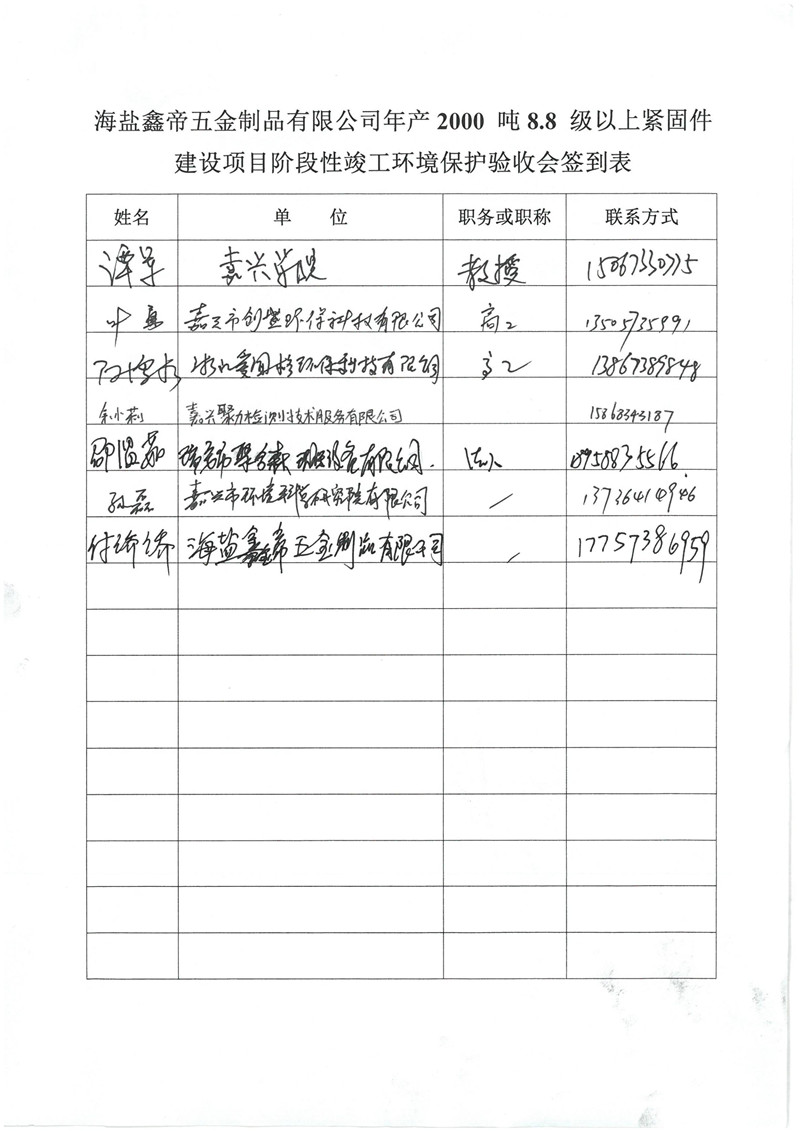 海盐鑫帝五金制品有限公司年产 2000 吨 8.8 级以上紧固件
建设项目阶段性竣工环境保护验收会签到表
姓名 单 位 职务或职称 联系方式
谭军 嘉兴学院 教授 15067330775
叶 嘉兴市创 环保科技有限公司 高工 13505735991
环保科技有限公司 高工 13867389848
余小莉 嘉兴聚力检测技术服务有限公司 15868343187
邵 设备有限公司 法人
孙磊 嘉兴市环境科学研究院有限公司 / 13736414946
付娇娇 海盐鑫帝五金制品有限公司 / 17757386959